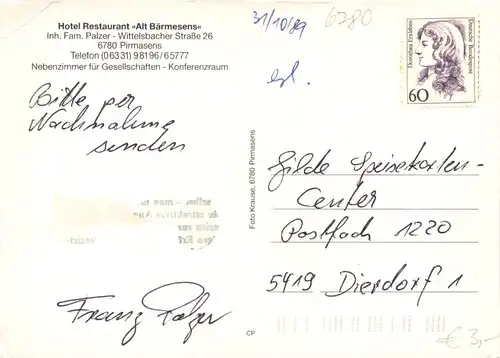 Hotel Restaurant »Alt Bärmesens«
Inh. Fam. Palzer - Wittelsbacher Straße 26
6780 Pirmasens
Telefon (06331) 98196/65777
Nebenzimmer für Gesellschaften - Konferenzraum
31/10/89
6780
erl.
Dorothea Erxleben
Deutsche Bundespost
60
Bitte per
Nachnahme
senden
Foto Krause, 6780 Pirmasens
Gilde Speisekarten-
Center
Postfach 1220
5419 Dierdorf 1
Franz Palzer
CP
€ 3,-